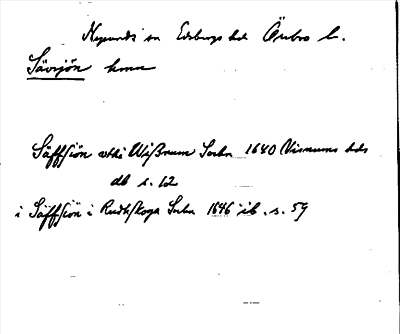 Nysunds sn Edsbergs hd Örebro l.
Sävsjön hmn
Säffsiön utki Wißnum Sochn 1640 Visnums hds
db s. 12
i Säffsiön i Rudhskoga Sochn 1646 ib. s. 59